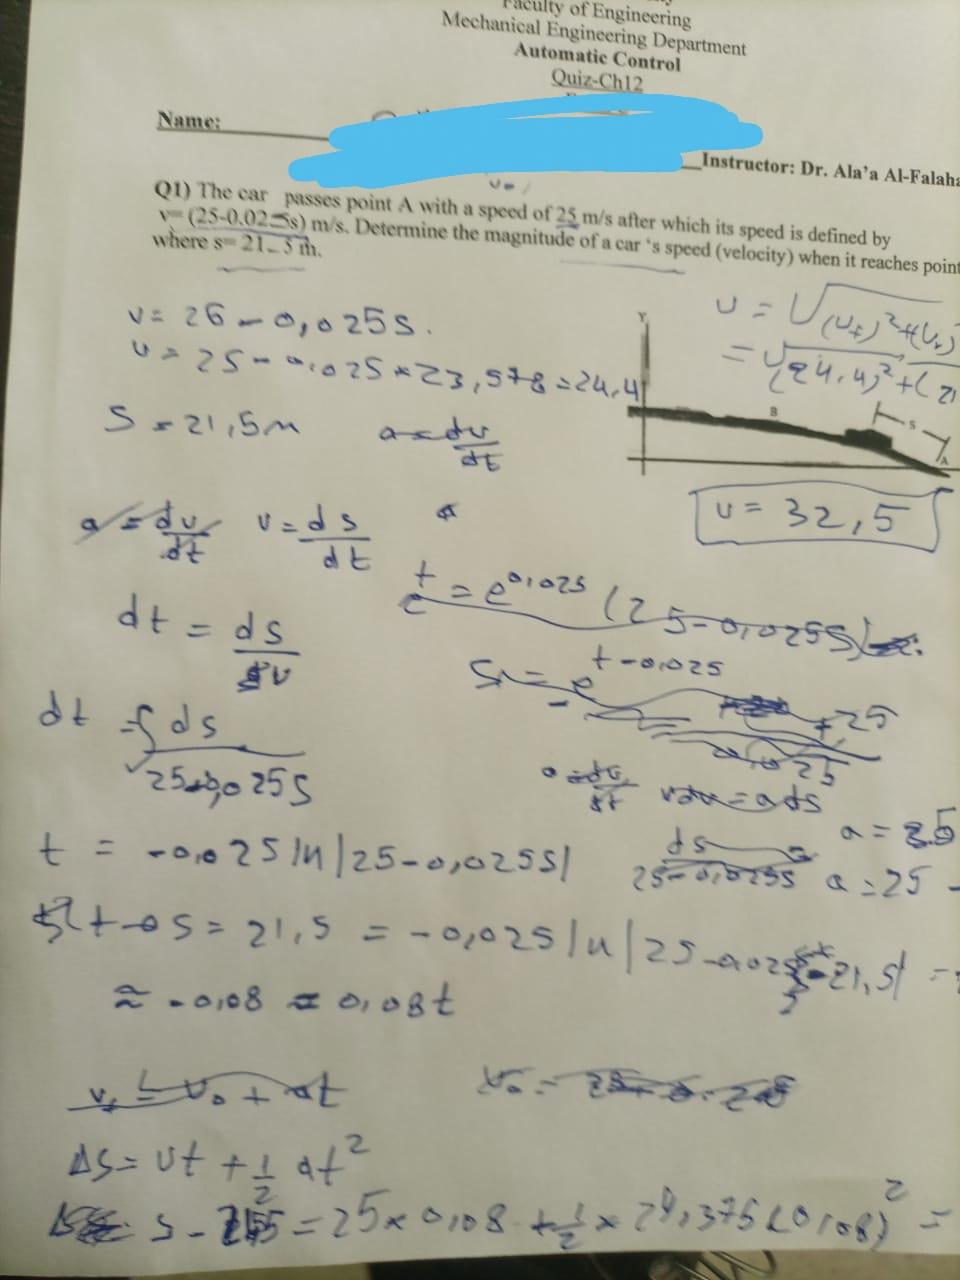 Faculty of Engineering
Mechanical Engineering Department
Automatic Control
Quiz-Ch12
Name:
Instructor: Dr. Ala'a Al-Falaha
Q1) The car passes point A with a speed of 25 m/s after which its speed is defined by
v= (25-0.025s) m/s. Determine the magnitude of a car 's speed (velocity) when it reaches point
where s= 21.5 m.
v = 26 - 0,025S.
v = 25 - 0,025 * 23,578 = 24,4
S = 21,5m
a = dv/dt
= √(24.4)² + (21
Y
B
S
A
v = 32,5
a = dv/dt
v = ds/dt
dt = ds/v
dt = ∫ ds
25-0,025S
t = -0,025 ln|25-0,025S|
vdv = ads
ds
25-0,025S
a = 25 -
S = 21,5 = -0,025 ln|25-0.025 * 21,5| =
≈ -0,08 = 0,08t
v = v₀ + at
ΔS = vt + 1/2 at²
= 25 × 0,08 + 1/2 × 24,375 (0,08)² =